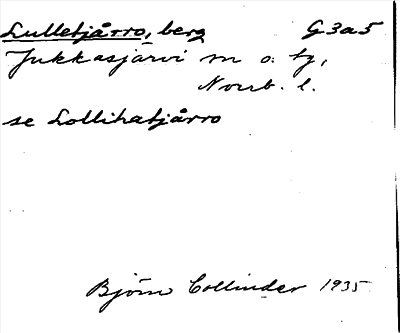 Lulletjårro, berg G3a5
Jukkasjärvi sn o. tg,
Norrb. l.
se Lollihatjårro
Björn Collinder 1935